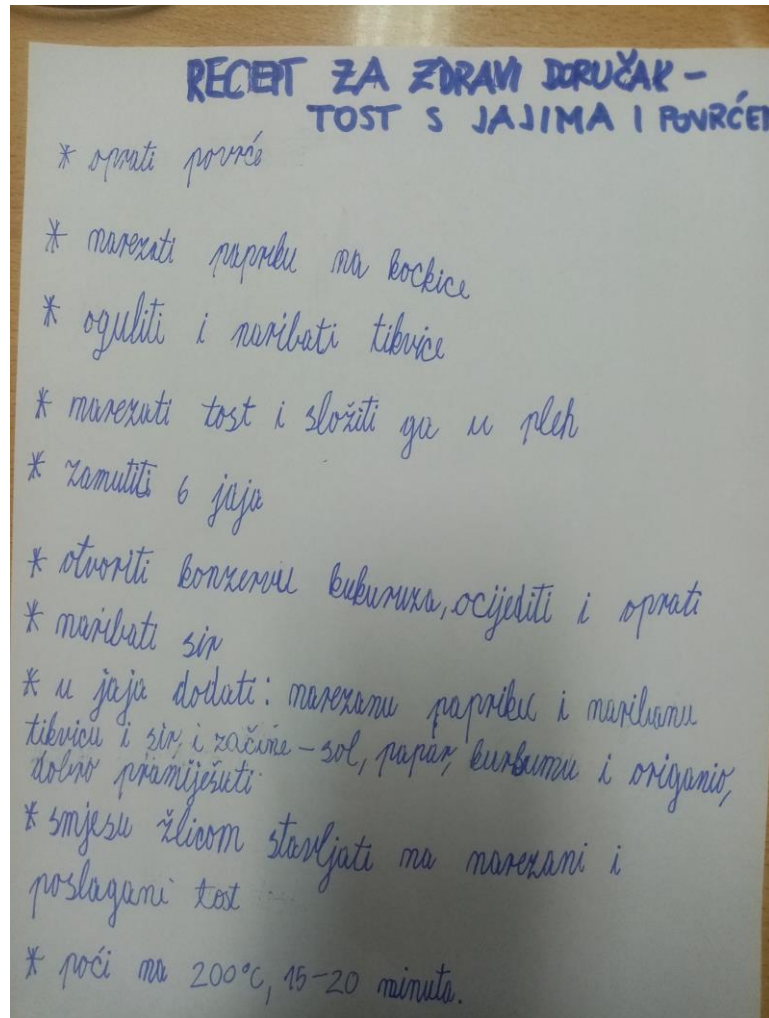 RECEPT ZA ZDRAVI DORUČAK -
TOST S JAJIMA I POVRĆEM
* oprati povrće
* narezati papriku na kockice
* oguliti i naribati tikvice
* narezati tost i složiti ga u pleh
* zamutiti 6 jaja
* otvoriti konzervu kukuruza, ocijediti i oprati
* naribati sir
* u jaja dodati: narezanu papriku i naribanu
tikvicu i sir, i začine - sol, papar, kurkumu i origano,
dobro promiješati
* smjesu žlicom stavljati na narezani i
poslagani tost
* peći na 200°C, 15-20 minuta.